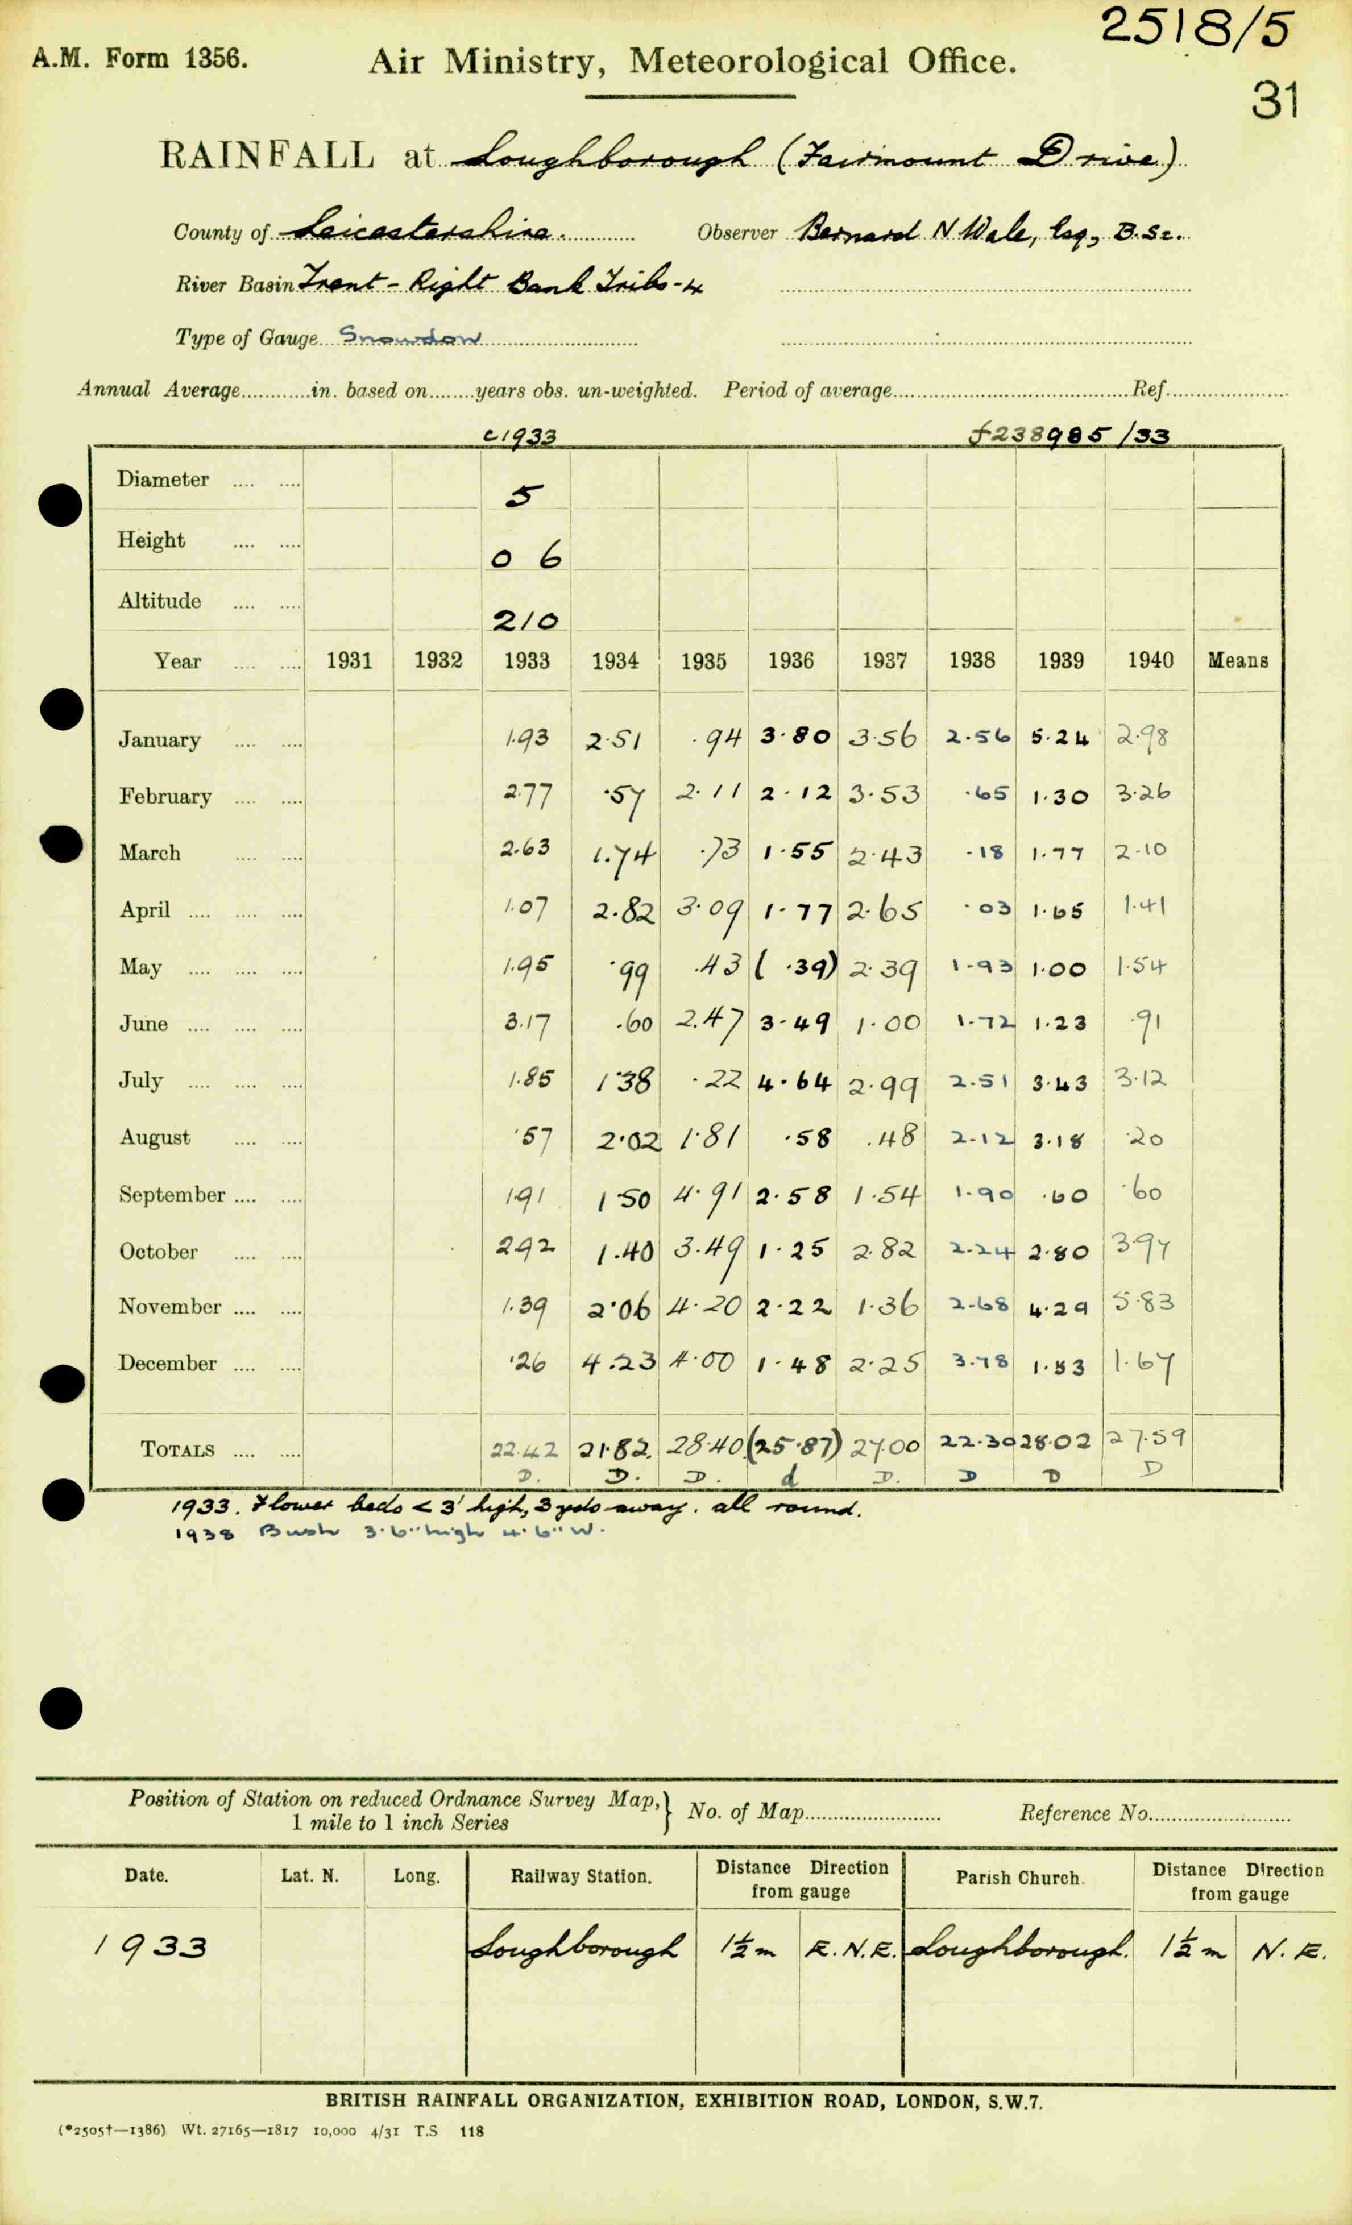 2518/5
A.M. Form 1356. Air Ministry, Meteorological Office.
31
RAINFALL at Loughborough (Fairmount Drive)
County of Leicestershire. Observer Bernard N Wale, Esq, B.Sc.
River Basin Trent - Right Bank Tribs - 4
Type of Gauge Snowdon
Annual Average in. based on years obs. un-weighted. Period of average Ref.
c1933 f238985/33
Diameter 5
Height 0 6
Altitude 210
Year 1931 1932 1933 1934 1935 1936 1937 1938 1939 1940 Means
January 1.93 2.51 .94 3.80 3.56 2.56 5.24 2.98
February 2.77 .57 2.11 2.12 3.53 .65 1.30 3.26
March 2.63 1.74 .73 1.55 2.43 .18 1.77 2.10
April 1.07 2.82 3.09 1.77 2.65 .03 1.65 1.41
May 1.95 .99 .43 ( .39) 2.39 1.93 1.00 1.54
June 3.17 .60 2.47 3.49 1.00 1.72 1.23 .91
July 1.85 1.38 .22 4.64 2.99 2.51 3.43 3.12
August .57 2.02 1.81 .58 .48 2.12 3.18 .20
September 1.91 1.50 4.91 2.58 1.54 1.90 .60 .60
October 2.92 1.40 3.49 1.25 2.82 2.24 2.80 3.97
November 1.39 2.06 4.20 2.22 1.36 2.68 4.29 5.83
December .26 4.23 4.00 1.48 2.25 3.78 1.53 1.67
TOTALS 22.42 21.82 28.40 (25.87) 27.00 22.30 28.02 27.59
D. D. D. d D. D D D
1933. Flower beds < 3' high, 3 yds away. all round.
1938 Bush 3.6" high 4.6" W.
Position of Station on reduced Ordnance Survey Map, } No. of Map Reference No.
1 mile to 1 inch Series
Date. Lat. N. Long. Railway Station. Distance Direction from gauge Parish Church. Distance Direction from gauge
1933 Loughborough 1½ m E.N.E. Loughborough. 1½ m N.E.
BRITISH RAINFALL ORGANIZATION, EXHIBITION ROAD, LONDON, S.W.7.
(*2505†—1386) Wt. 27165—1817 10,000 4/31 T.S 118